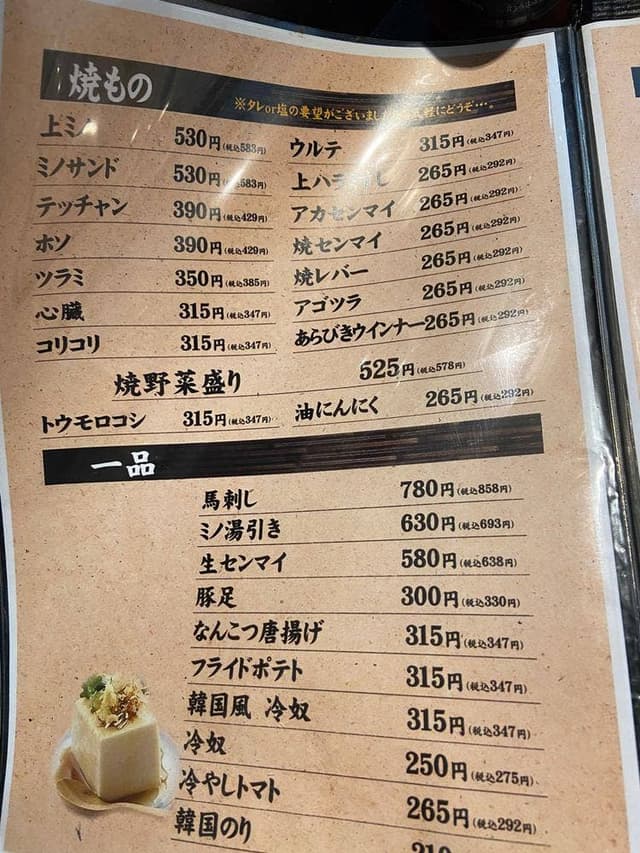 焼もの
※タレor塩の要望がございました 軽にどうぞ…。
上ミノ 530円(税込583円)
ミノサンド 530円(税込583円)
テッチャン 390円(税込429円)
ホソ 390円(税込429円)
ツラミ 350円(税込385円)
心臓 315円(税込347円)
コリコリ 315円(税込347円)
ウルテ 315円(税込347円)
上ハラ し 265円(税込292円)
アカセンマイ 265円(税込292円)
焼センマイ 265円(税込292円)
焼レバー 265円(税込292円)
アゴツラ 265円(税込292円)
あらびきウインナー 265円(税込292円)
焼野菜盛り 525円(税込578円)
トウモロコシ 315円(税込347円)
油にんにく 265円(税込292円)
一品
馬刺し 780円(税込858円)
ミノ湯引き 630円(税込693円)
生センマイ 580円(税込638円)
豚足 300円(税込330円)
なんこつ唐揚げ 315円(税込347円)
フライドポテト 315円(税込347円)
韓国風 冷奴 315円(税込347円)
冷奴 250円(税込275円)
冷やしトマト 265円(税込292円)
韓国のり